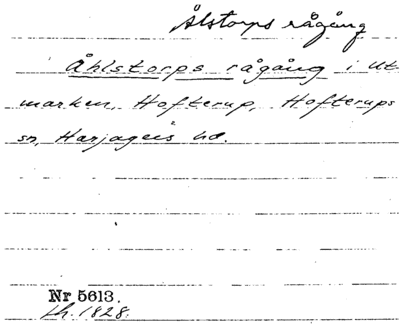 Ålstorps rågång
Åhlstorps rågång i Ut-
marken, Hofterup, Hofterups
sn, Harjagers hd.
Nr 5613.
Lh. 1828.